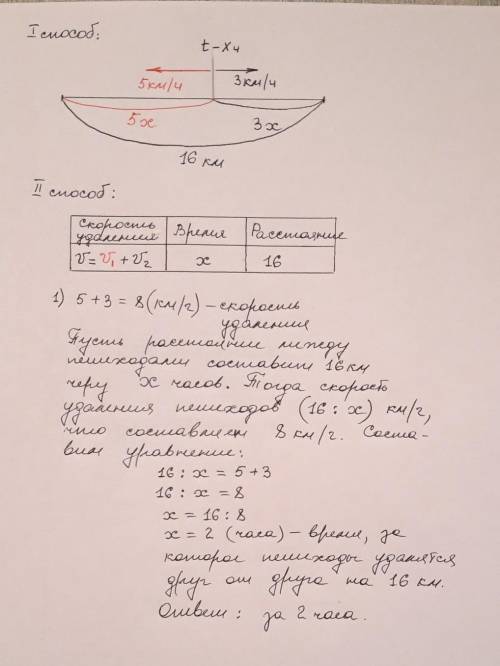 I способ:
t – x ч
5км/ч 3км/ч
5x 3x
16 км
II способ:
Скорость удаления Время Расстояние
V = V₁ + V₂ x 16
1) 5 + 3 = 8 (км/ч) – скорость
удаления
Пусть расстояние между
пешеходами составит 16 км
через x часов. Тогда скорость
удаления пешеходов (16 : x) км/ч,
что составляет 8 км/ч. Соста-
вим уравнение:
16 : x = 5 + 3
16 : x = 8
x = 16 : 8
x = 2 (часа) – время, за
которое пешеходы удалятся
друг от друга на 16 км.
Ответ: за 2 часа.